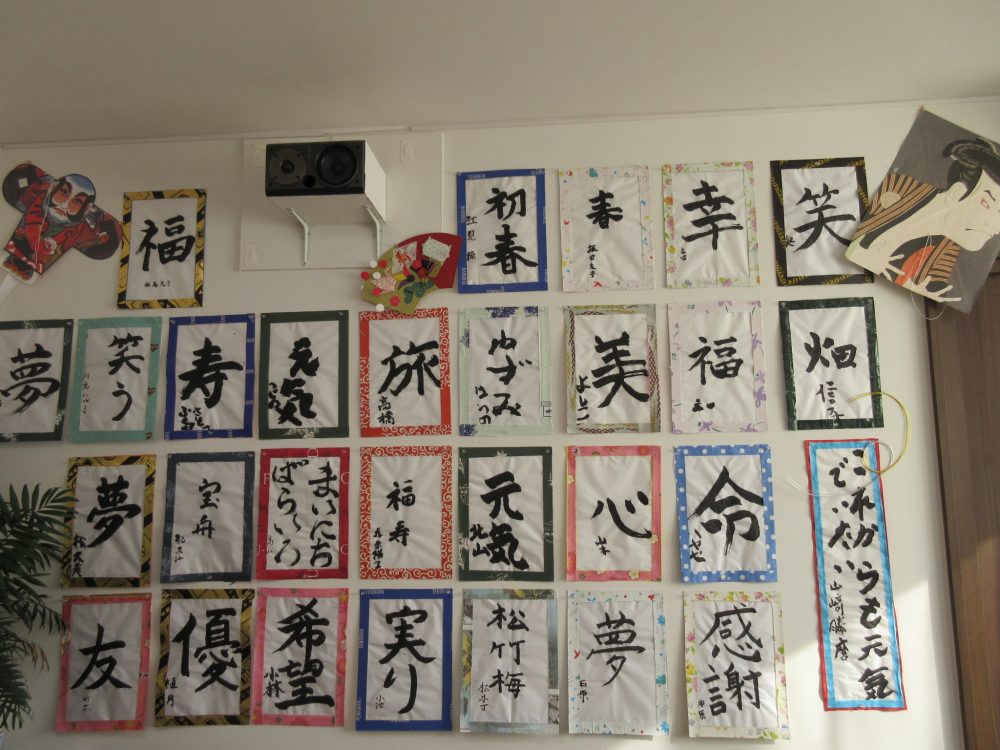 福
初春
春
幸
笑
夢
笑う
寿
元気
旅
高橋
ゆずみ
美
よしこ
福
畑
夢
宝舟
まいにち
ばらいろ
福寿
元気
北山
心
山本
命
これからも元気
でいたい
山崎勝彦
友
優
希望
小林
実り
松竹梅
夢
石原
感謝